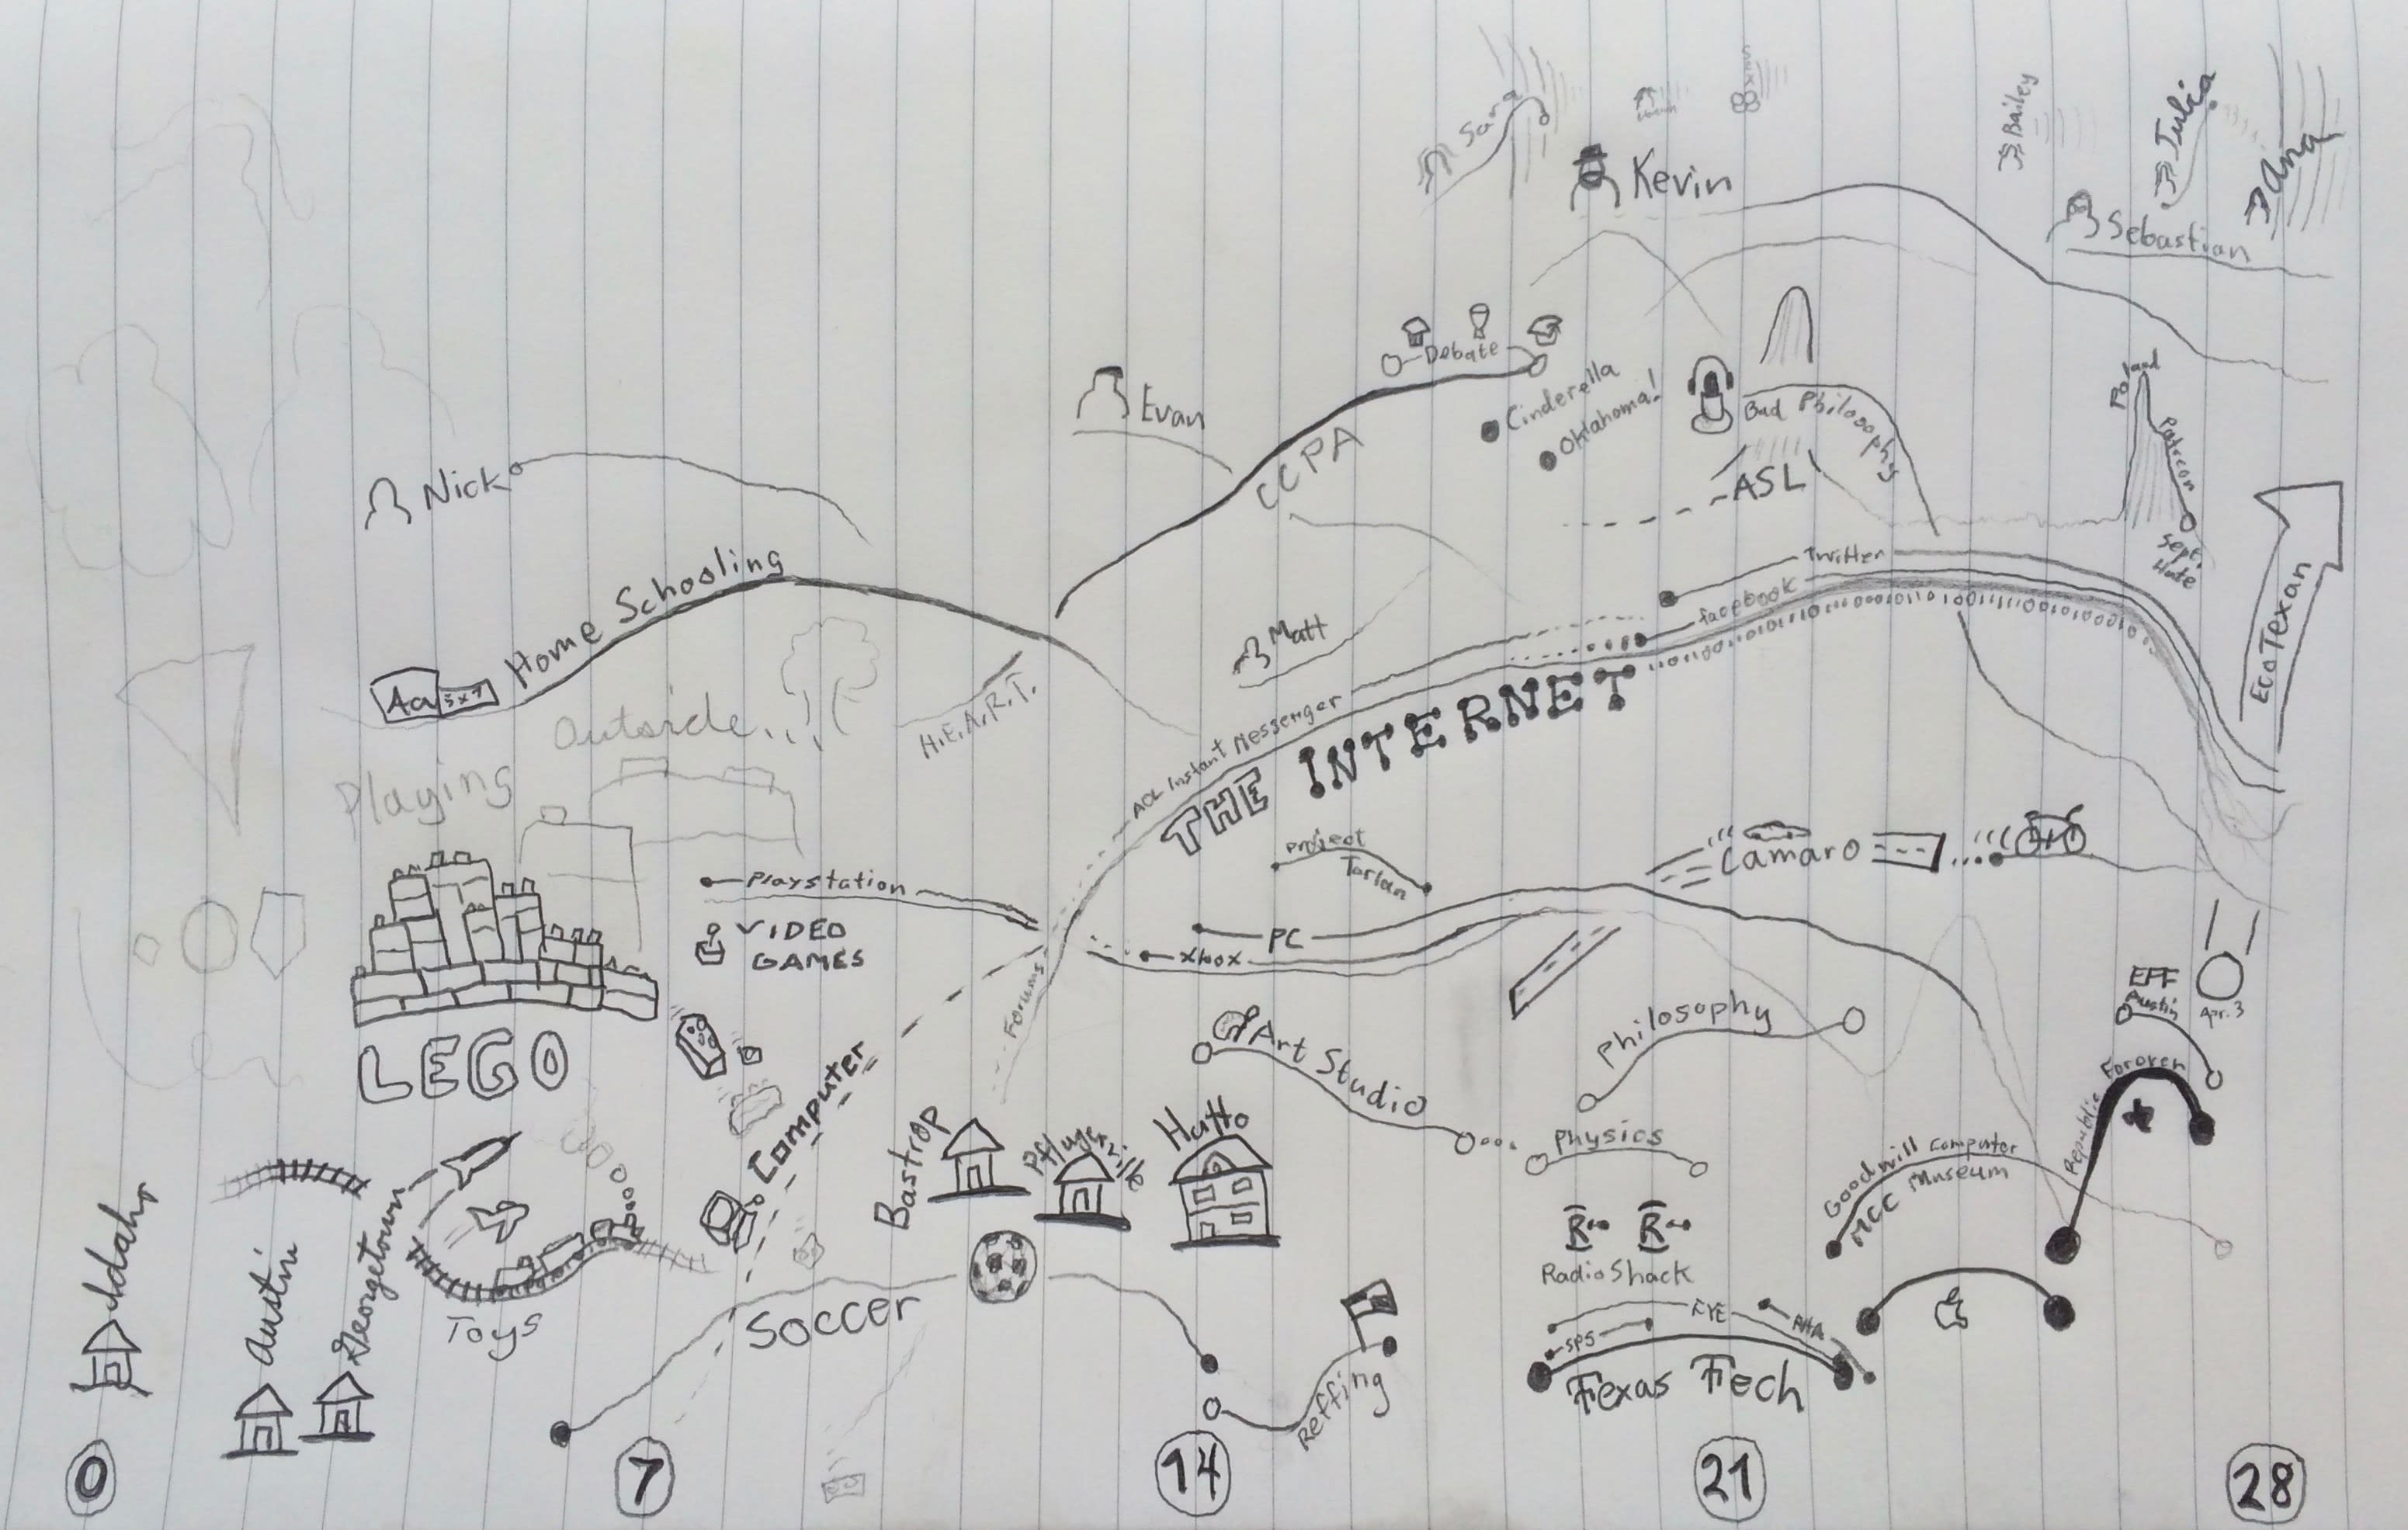 Sara
Kevin
Bailey
Julia
Ana
Sebastian
Nick
Evan
CCPA
Debate
Cinderella
Oklahoma!
Bad Philosophy
ASL
Poland
Patreon
Sept.
Hate
EcoTexan
Twitter
facebook
Aa 5x7
Home Schooling
Outside...
Playing
H.E.A.R.T.
Matt
AOL Instant Messenger
THE INTERNET
Project
Torlan
Playstation
VIDEO
GAMES
PC
Xbox
Camaro
Forums
LEGO
Computer
Art Studio
Philosophy
Physics
EFF
Austin
Apr. 3
Republic Forever
Goodwill Computer
Museum
MCC
Idaho
Austin
Georgetown
Toys
Bastrop
Pflugerville
Hutto
Soccer
Reffing
R R
RadioShack
SPS
FYE
RHA
Texas Tech
0
7
14
21
28